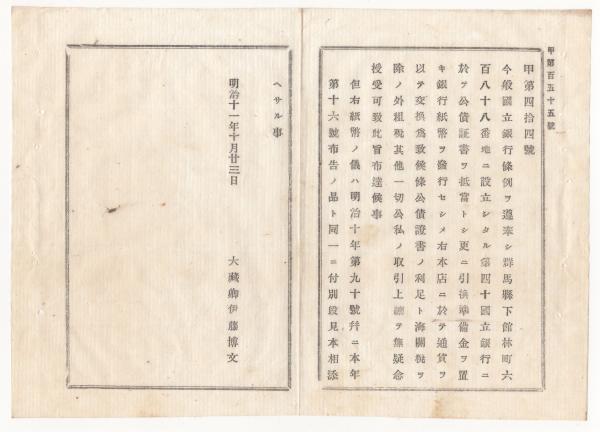 甲第百五十五號
甲第四拾四號
今般國立銀行條例ヲ遵奉シ群馬縣下館林町六
百八十八番地ニ設立シタル第四十國立銀行ニ
於テ公債証書ヲ抵當トシ更ニ引換準備金ヲ置
キ銀行紙幣ヲ發行セシメ右本店ニ於テ通貨ヲ
以テ交換爲致候條公債證書ノ利足ト海關稅ヲ
除ノ外租稅其他一切公私ノ取引上總テ無疑念
授受可致此旨布達候事
但右紙幣ノ儀ハ明治十年第九十號幷ニ本年
第十六號布告ノ品ト同一ニ付別段見本相添
ヘサル事
明治十一年十月廿三日
大藏卿伊藤博文